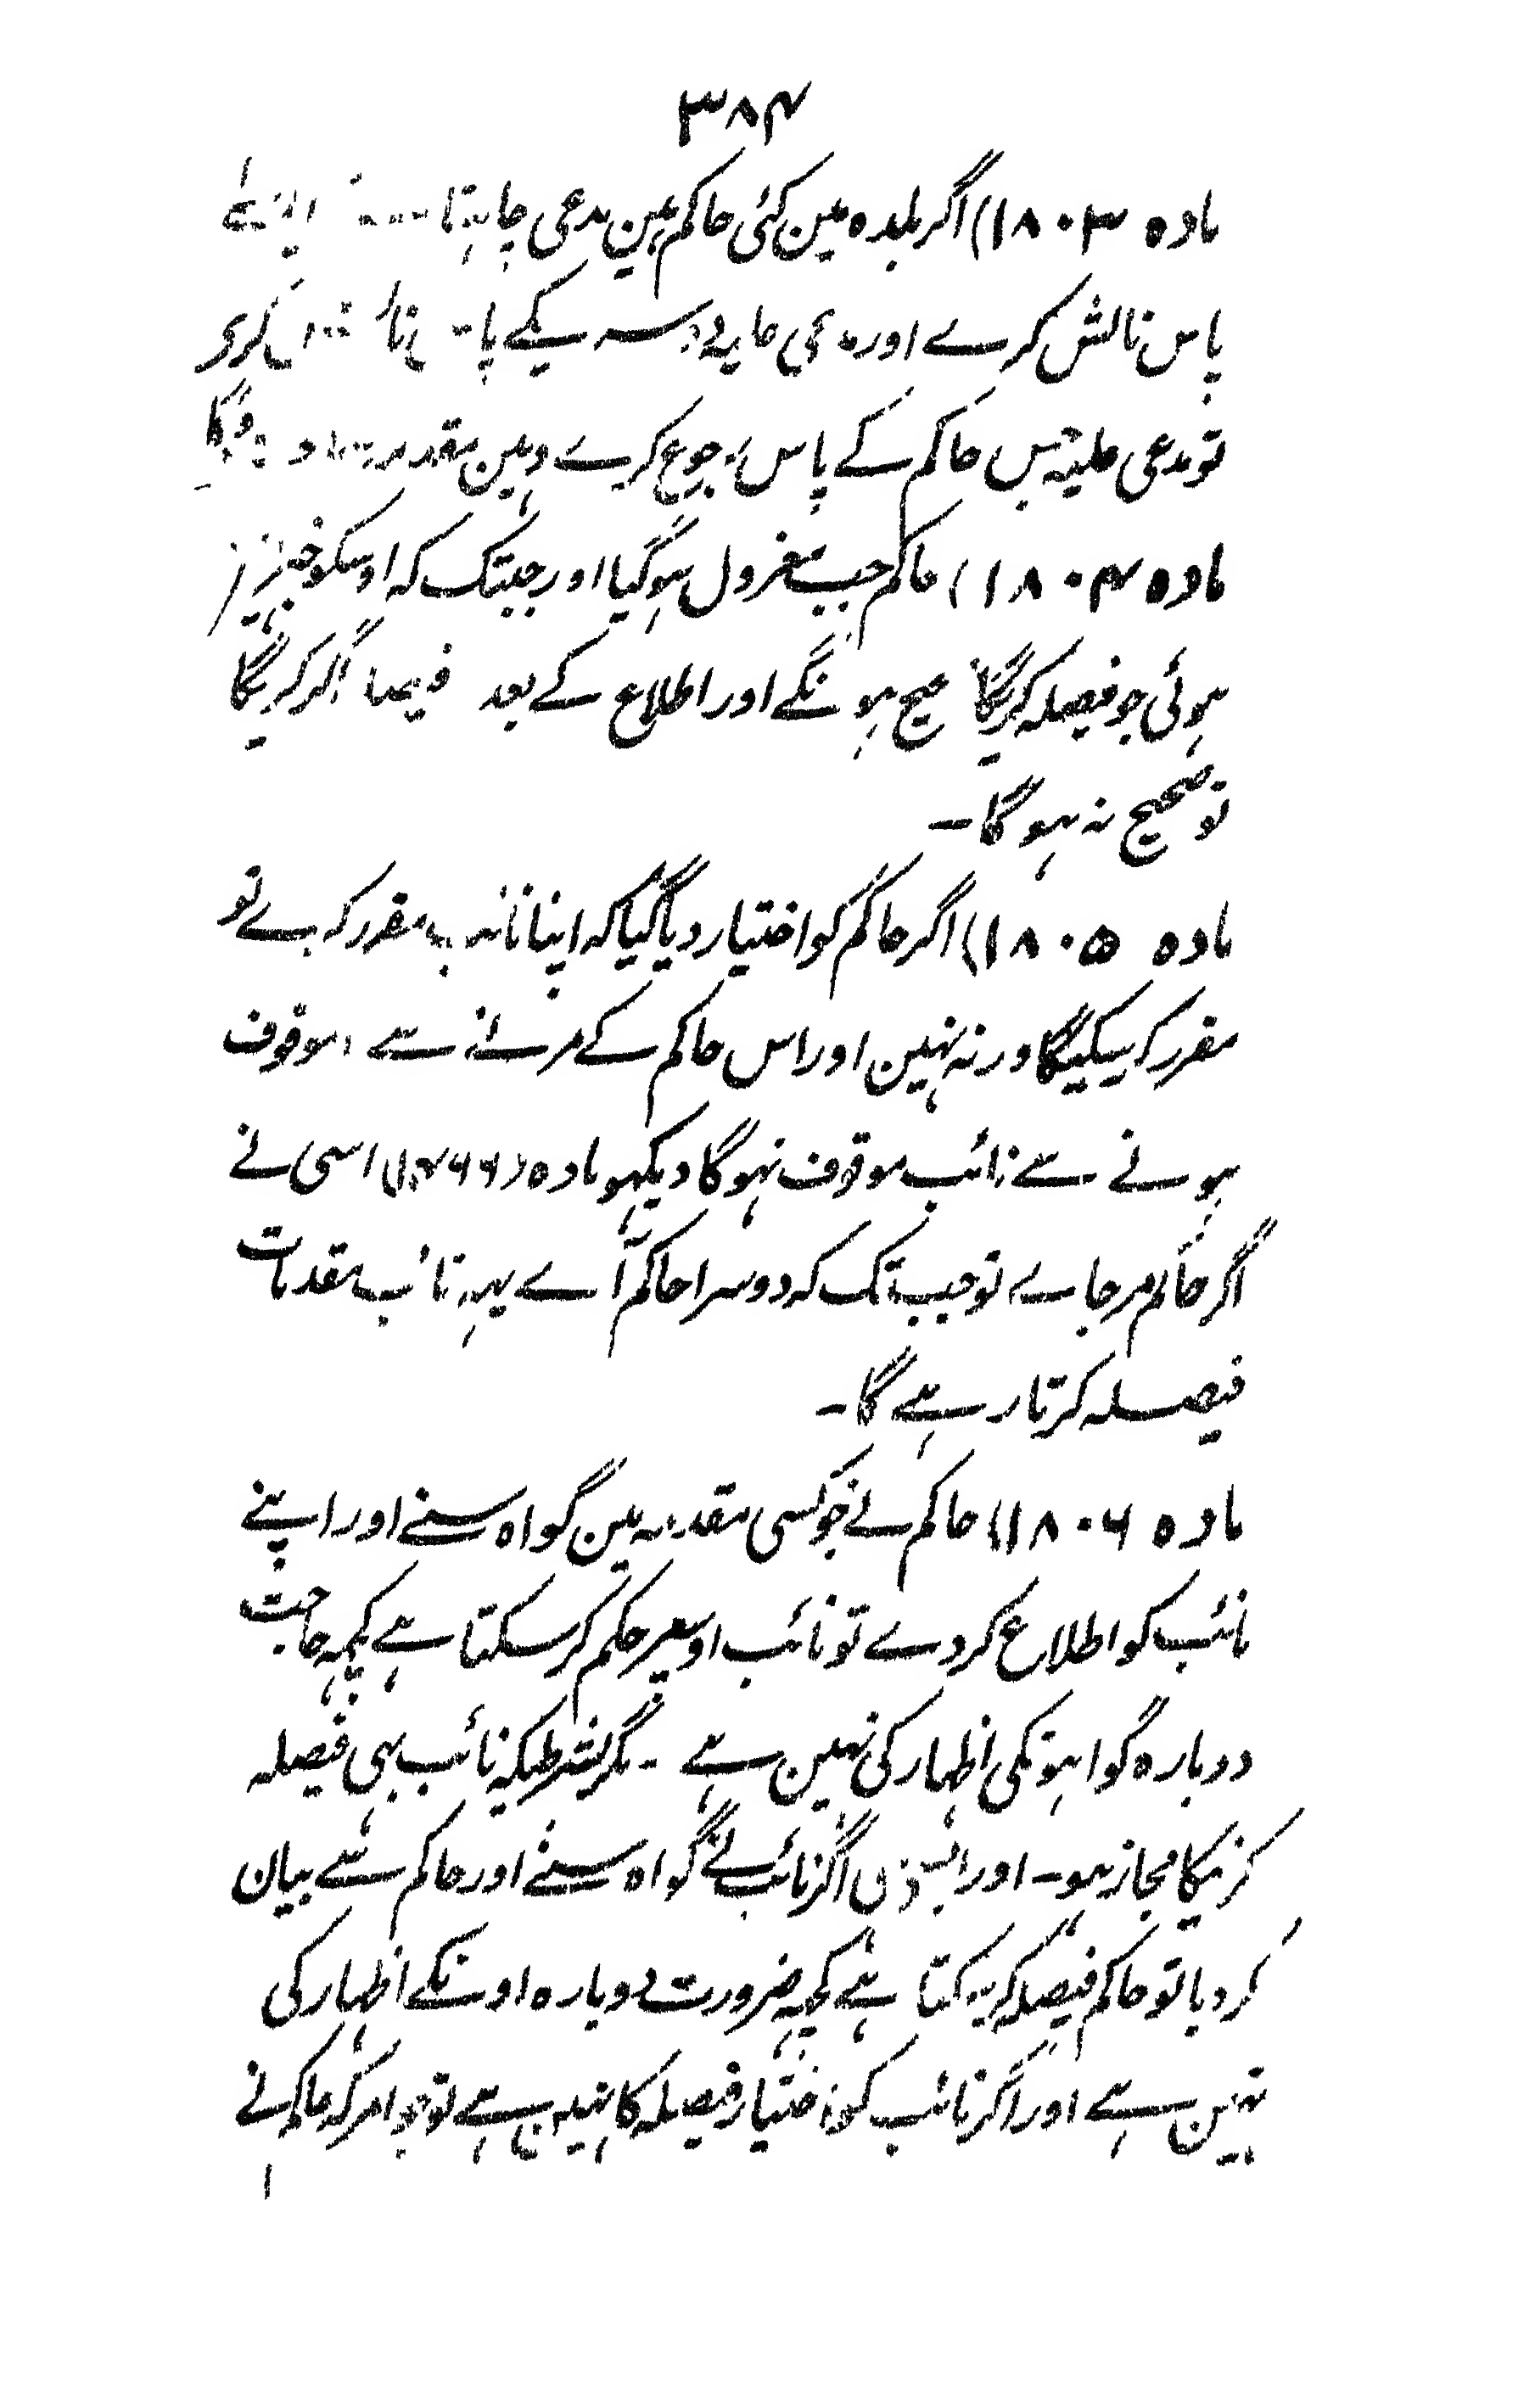 ۳۸۴
مادہ ۱۸۰۳) اگر بلدہ مین کئی حاکم ہین مدعی چاہتا
پاس نالش کرے اور کے پاس کری
تو مدعی علیہ جس حاکم کے پاس رجوع کرے وہین مقدمہ ہوگا
مادہ ۱۸۰۴) حاکم جب معزول ہوگیا اور جبتک کہ اوسکو خبر
ہوئی جو فیصلہ کریگا صحیح ہونگے اور اطلاع کے بعد اگر کریگا
تو صحیح نہ ہوگا ۔
مادہ ۱۸۰۵) اگر حاکم کو اختیار دیا گیا کہ اپنا نائب مقرر کرے تو
مقرر کرسکیگا ورنہ نہین اور اس حاکم کے مرنے سے موقوف
ہونے سے نائب موقوف نہوگا دیکھو مادہ اسی لئے
اگر حاکم مرجاے تو جب تک کہ دوسرا حاکم آے یہہ نائب مقدمات
فیصلہ کرتا رہے گا ۔
مادہ ۱۸۰۶) حاکم نے جو کسی مقدمہ مین گواہ سنے اور اپنے
نائب کو اطلاع کردے تو نائب اوسپر حکم کرسکتا ہے کچہہ حاجت
دوبارہ گواہونکی اظہار کی نہین ہے ۔ مگر بشرطیکہ نائب بہی فیصلہ
کرنیکا مجاز ہو ۔ اور اگر نائب نے گواہ سنے اور حاکم سے بیان
کردیا تو حاکم فیصلہ کرسکتا ہے کچہہ ضرورت دوبارہ اونکے اظہار کی
نہین ہے اور اگر نائب کو اختیار فیصلہ کا نہین ہے تو جو امر کہ حاکم نے